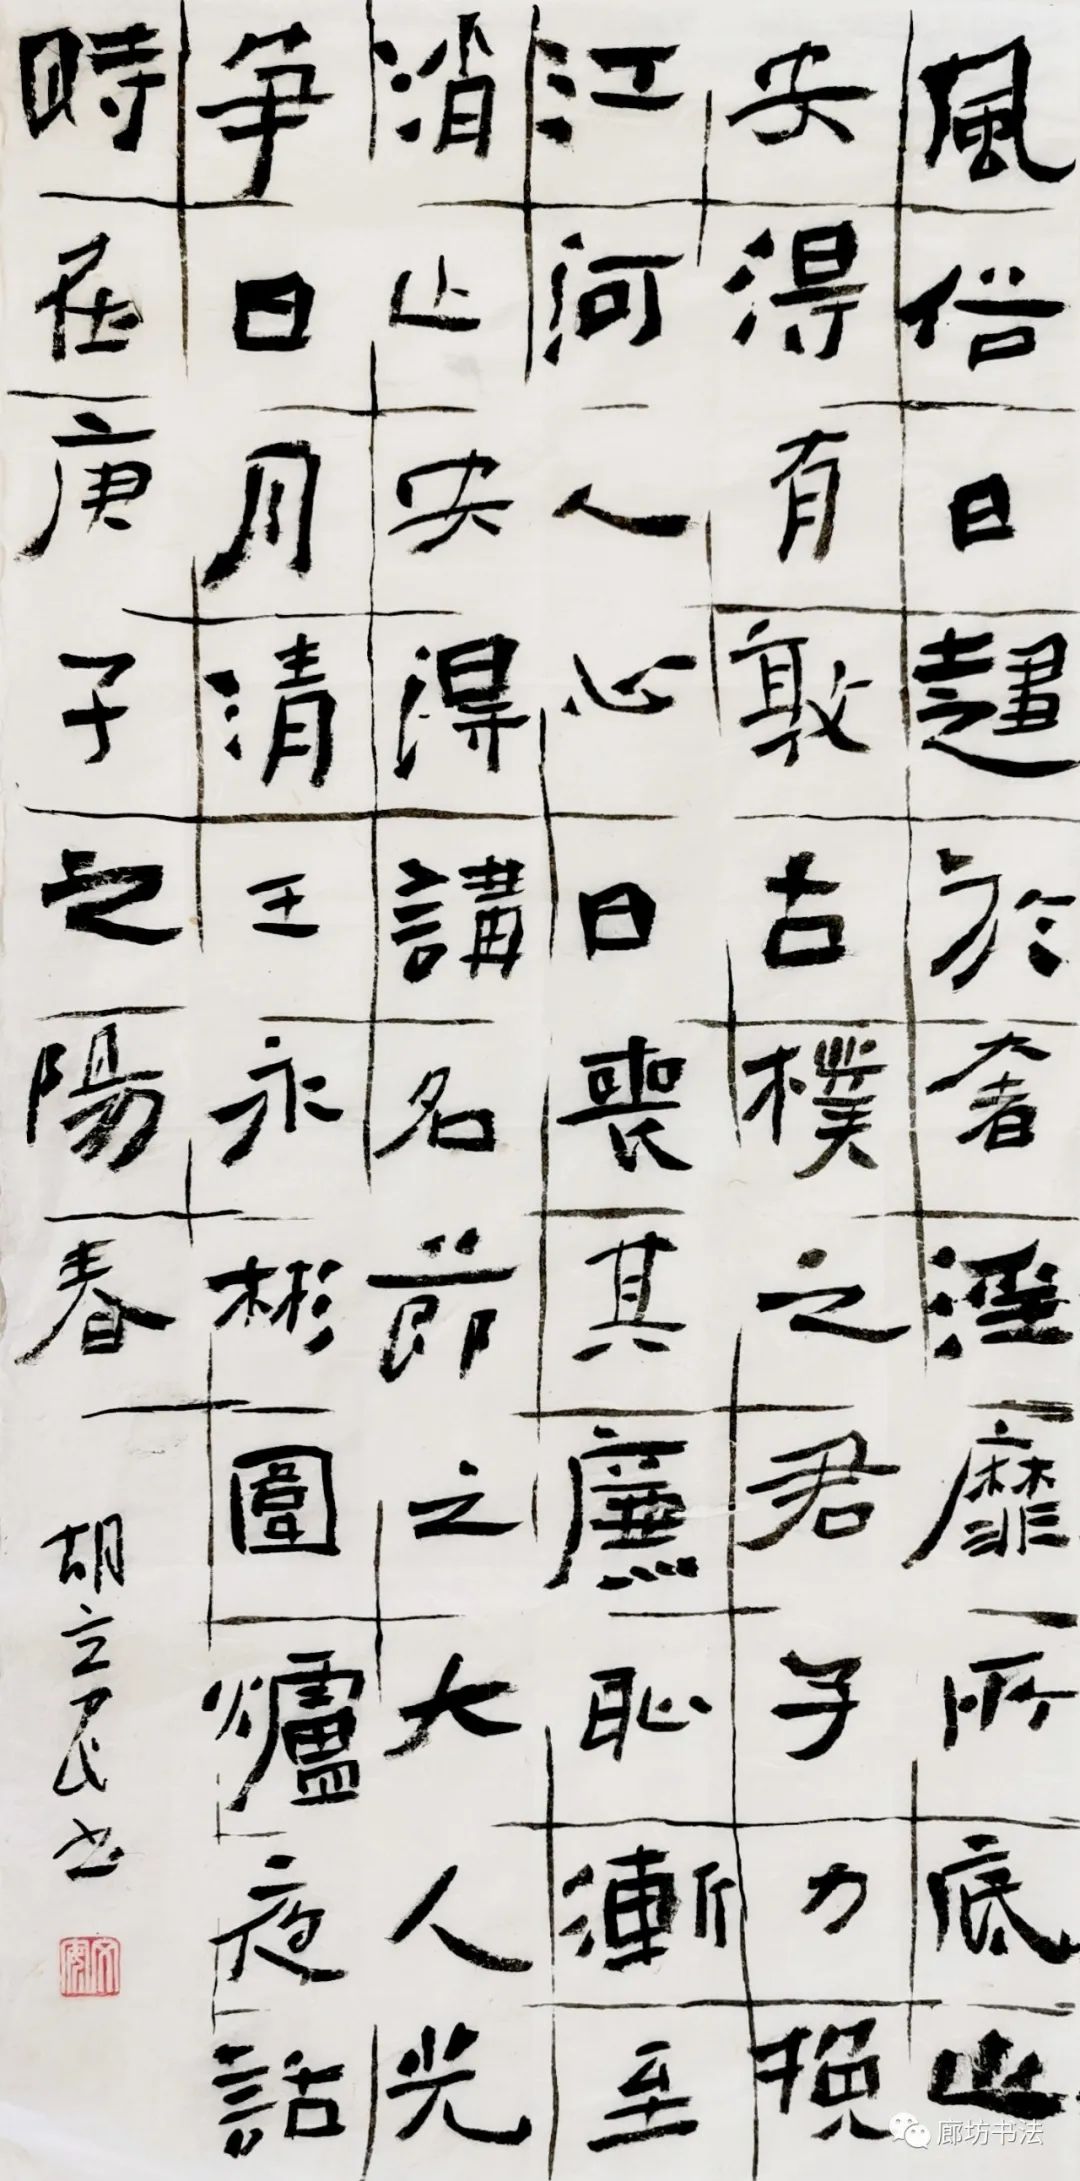 風俗日趨於奢淫靡所底止
安得有敦古樸之君子力挽
江河人心日喪其廉恥漸至
消亡安得講名節之大人光
争日月清王永彬圍爐夜話
時在庚子之陽春
胡立民书
廊坊书法